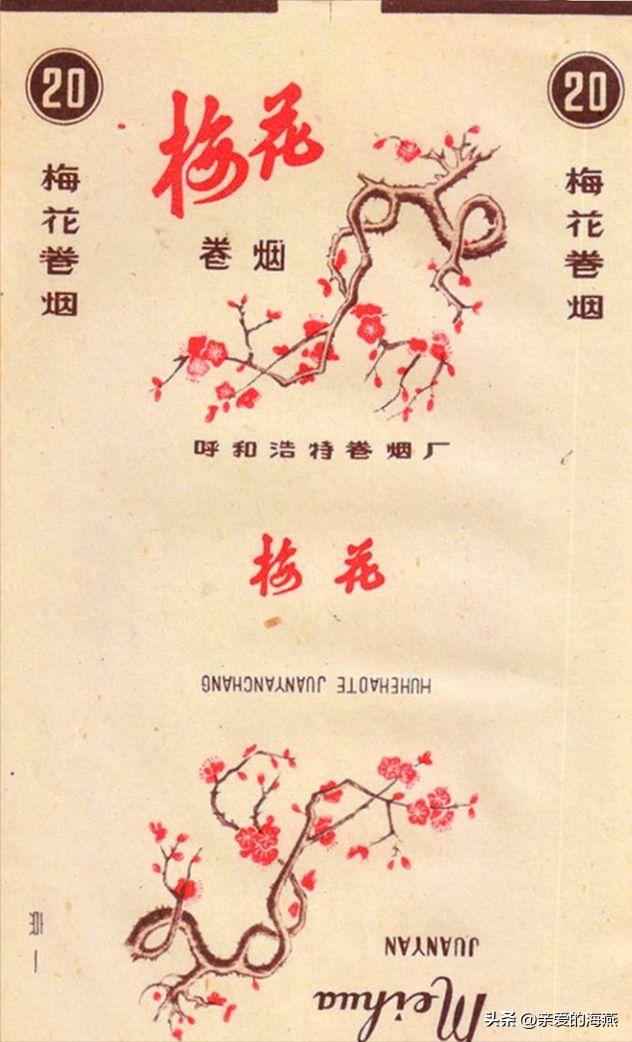 20
20
梅花卷烟
梅花
卷烟
梅花卷烟
呼和浩特卷烟厂
梅花
HUHEHAOTE JUANYANCHANG
JUANYAN
Meihua
头条 @亲爱的海燕